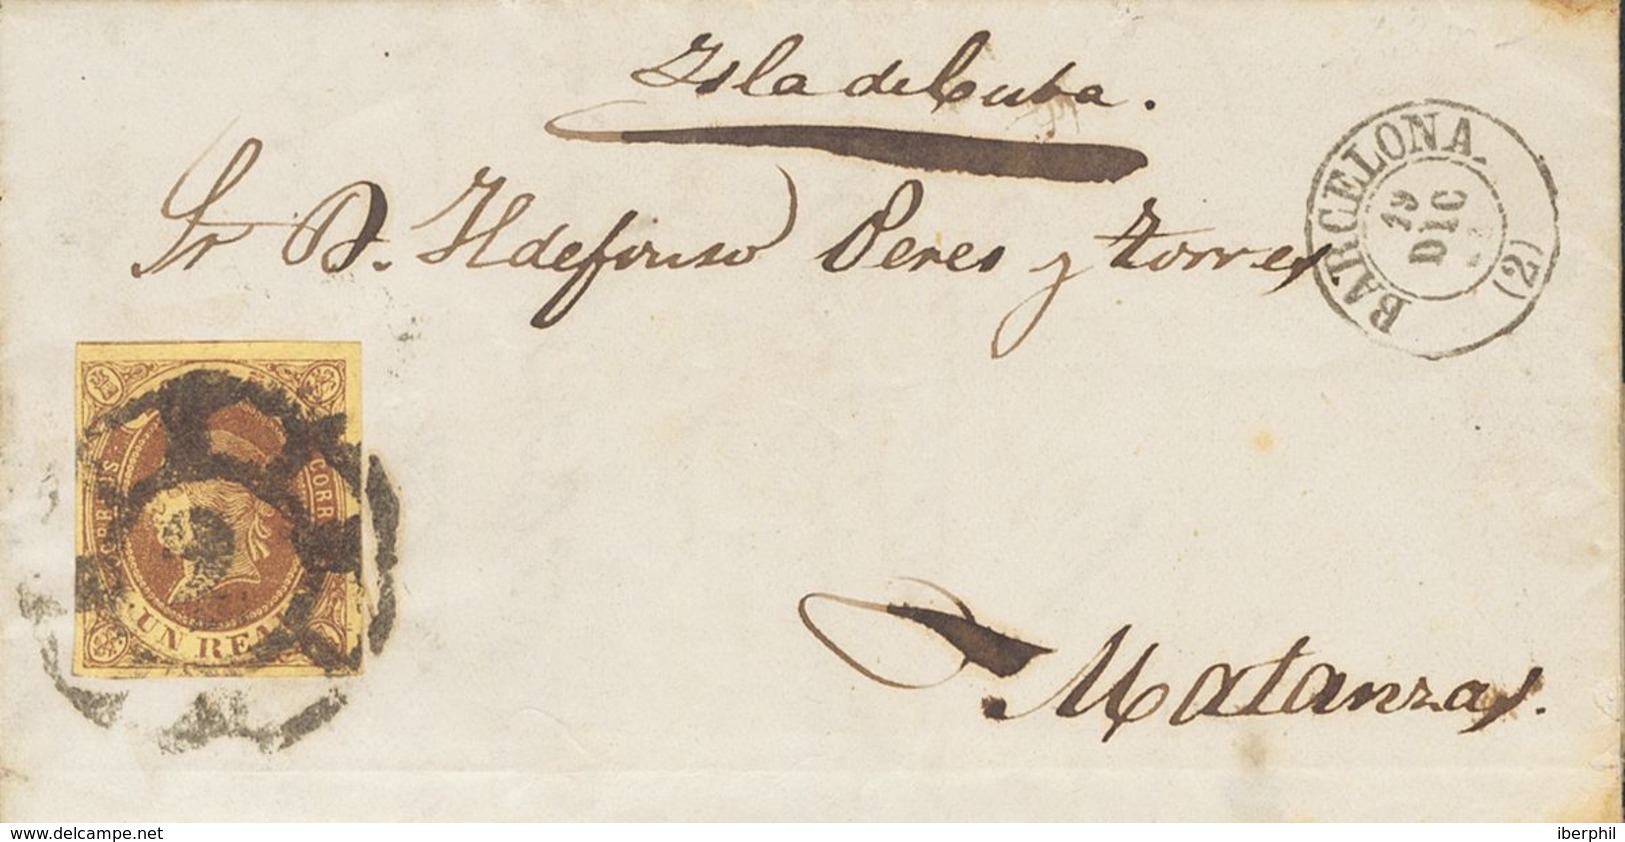 Isla de Cuba.
Sr D. Ildefonso Peres y Torres
Matanzas.
BARCELONA.
19
DIC
(2)
CORREOS
CORR
UN REA
www.delcampe.net
iberphil